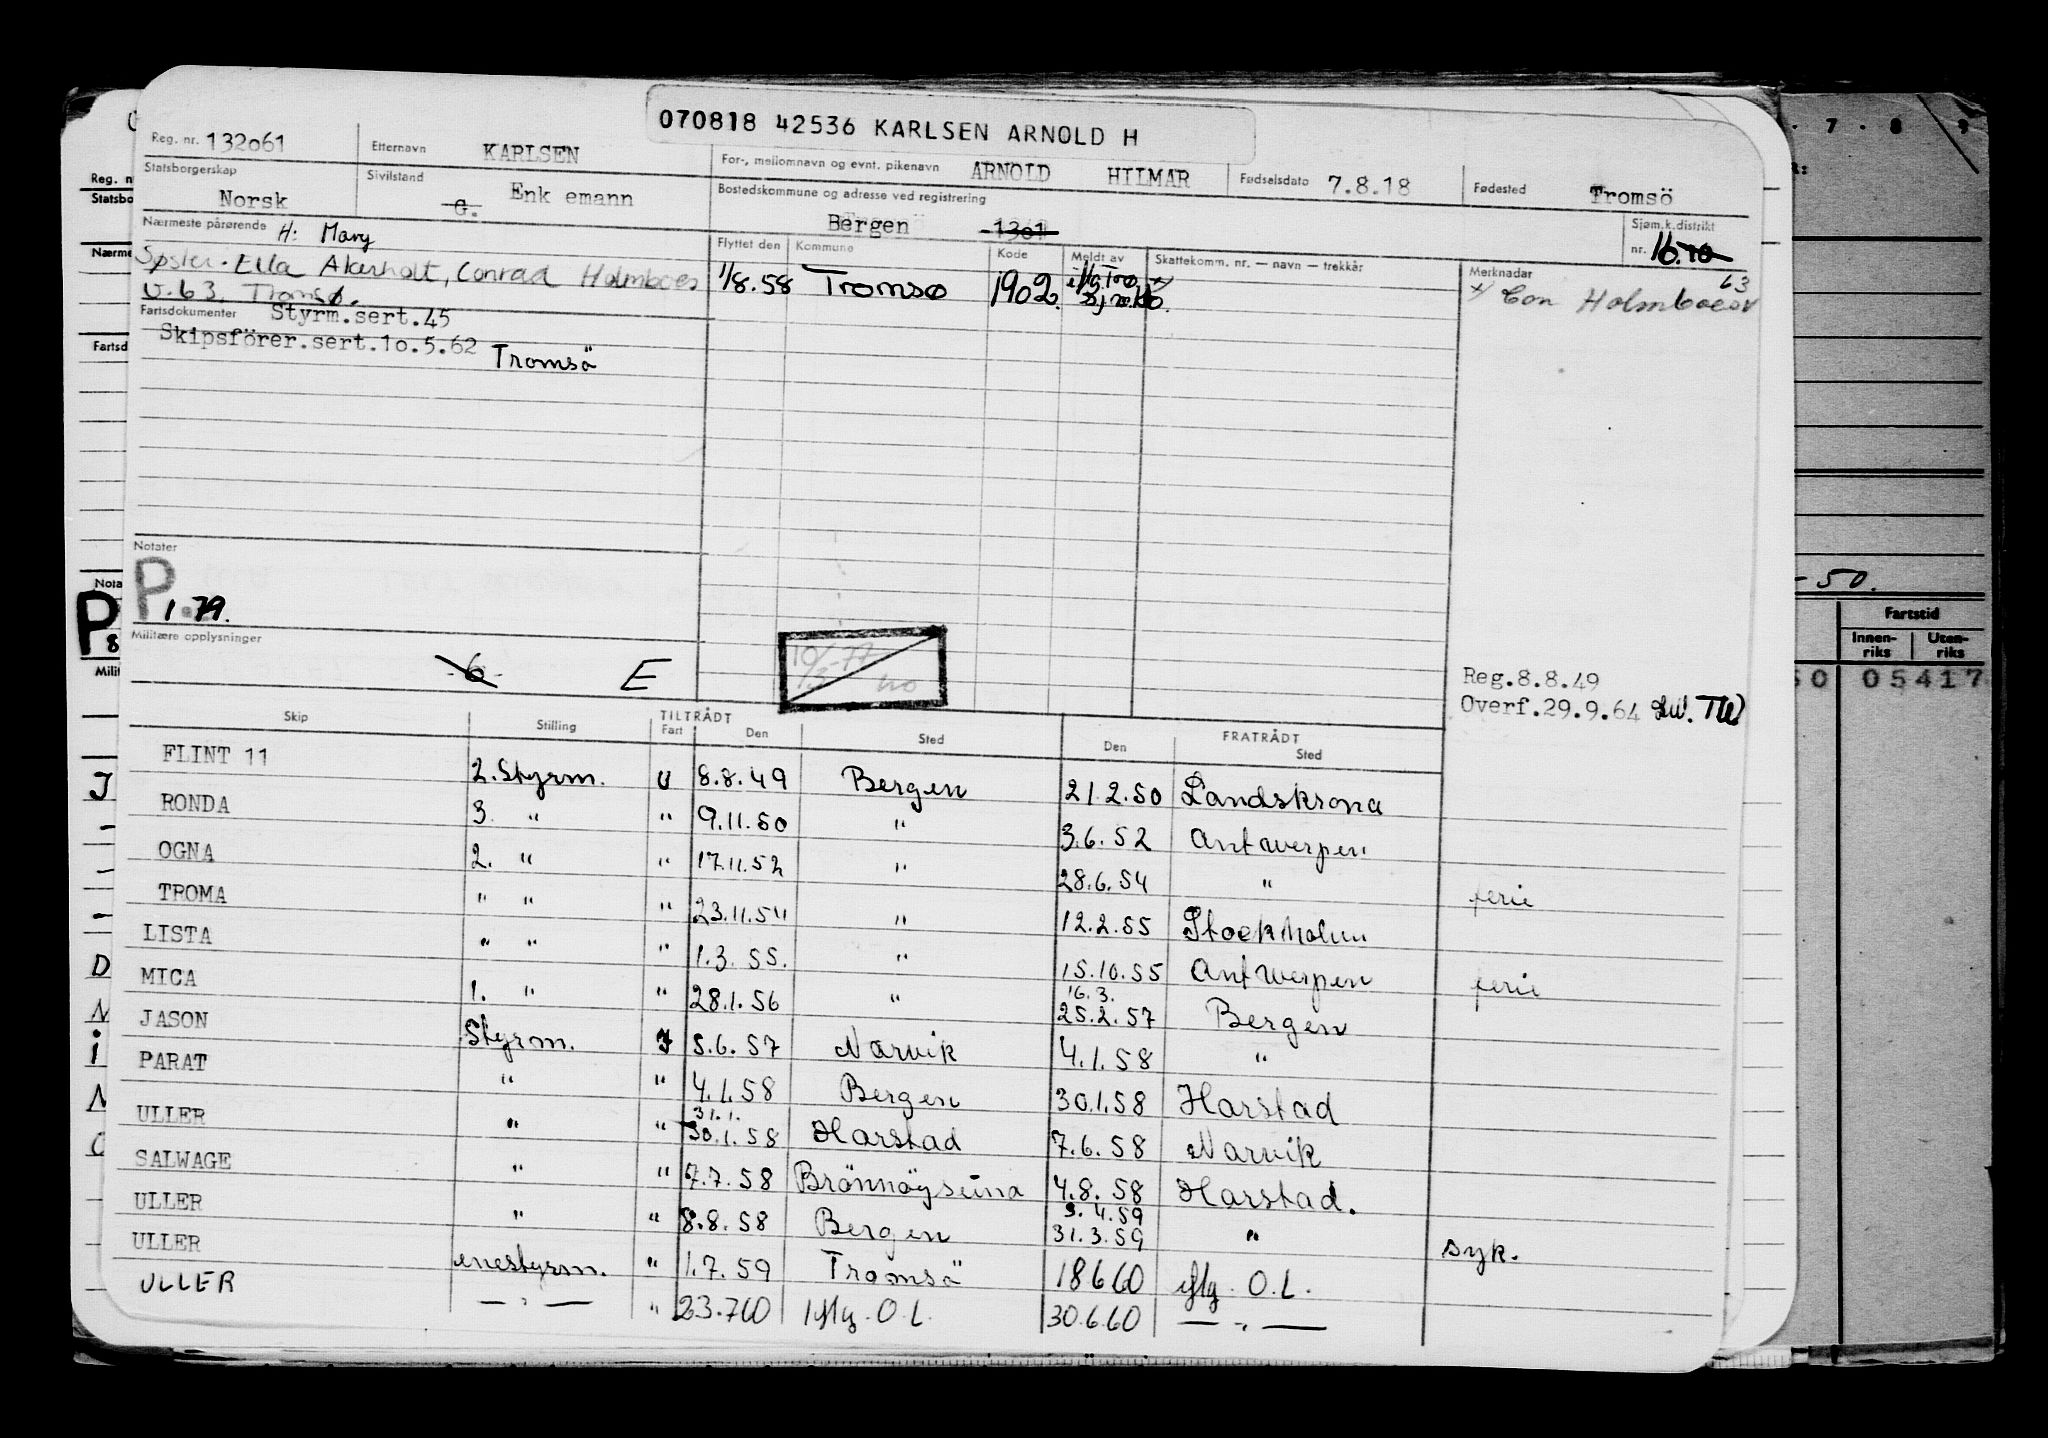 070818 42536 KARLSEN ARNOLD H
Reg. nr. 132061 Etternavn KARLSEN For-, mellomnavn og evnt. pikenavn ARNOLD HILMAR Fødselsdato 7.8.18 Fødested Tromsö
Statsborgerskap Norsk Sivilstand G. Enk emann Bostedskommune og adresse ved registrering Bergen 1301 Sjøm.k.distrikt nr. 16. 10
Nærmeste pårørende H: Mary
Søster. Ella Akerholt, Conrad Holmboes
v. 63. Tromsø.
Flyttet den Kommune Kode Meldt av Skattekomm. nr. — navn — trekkår Merknader
1/8.58 Tromsø 1902
x/ Con Holmboesv 63
Fartsdokumenter Styrm.sert.45
Skipsförer.sert.10.5.62 Tromsö
Notater
P.
1.79.
Militære opplysninger
6 E
Reg.8.8.49
Overf.29.9.64 TW
Skip Stilling TILTRÅDT Fart Den Sted FRATRÅDT Den Sted
FLINT 11 2. Styrm. U 8.8.49 Bergen 21.2.50 Landskrona
RONDA 3. " " 9.11.50 " 3.6.52 Antwerpen
OGNA 2. " " 17.11.52 " 28.6.54 " ferie
TROMA " " " 23.11.54 " 12.2.55 Stockholm
LISTA " " " 1.3.55. " 15.10.55 Antwerpen ferie
MICA 1. " " 28.1.56 " 16.3. 25.2.57 Bergen
JASON Styrm. I 5.6.57 Narvik 4.1.58 "
PARAT " " 4.1.58 Bergen 30.1.58 Harstad
ULLER " " 31.1. 30.1.58 Harstad 7.6.58 Narvik
SALWAGE " " 7.7.58 Brönnöysund 4.8.58 Harstad.
ULLER " " 8.8.58 Bergen 3.4.59 31.3.59 " syk.
ULLER enestyrm. " 1.7.59 Tromsö 18660 iflg. O.L.
ULLER — " — " 23.760 iflg. O.L. 30.6.60 — " —
- 50.
Fartstid
Innenriks Utenriks
50 05417